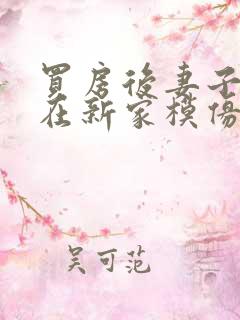 買房後妻子
在新家模傷
吴可范